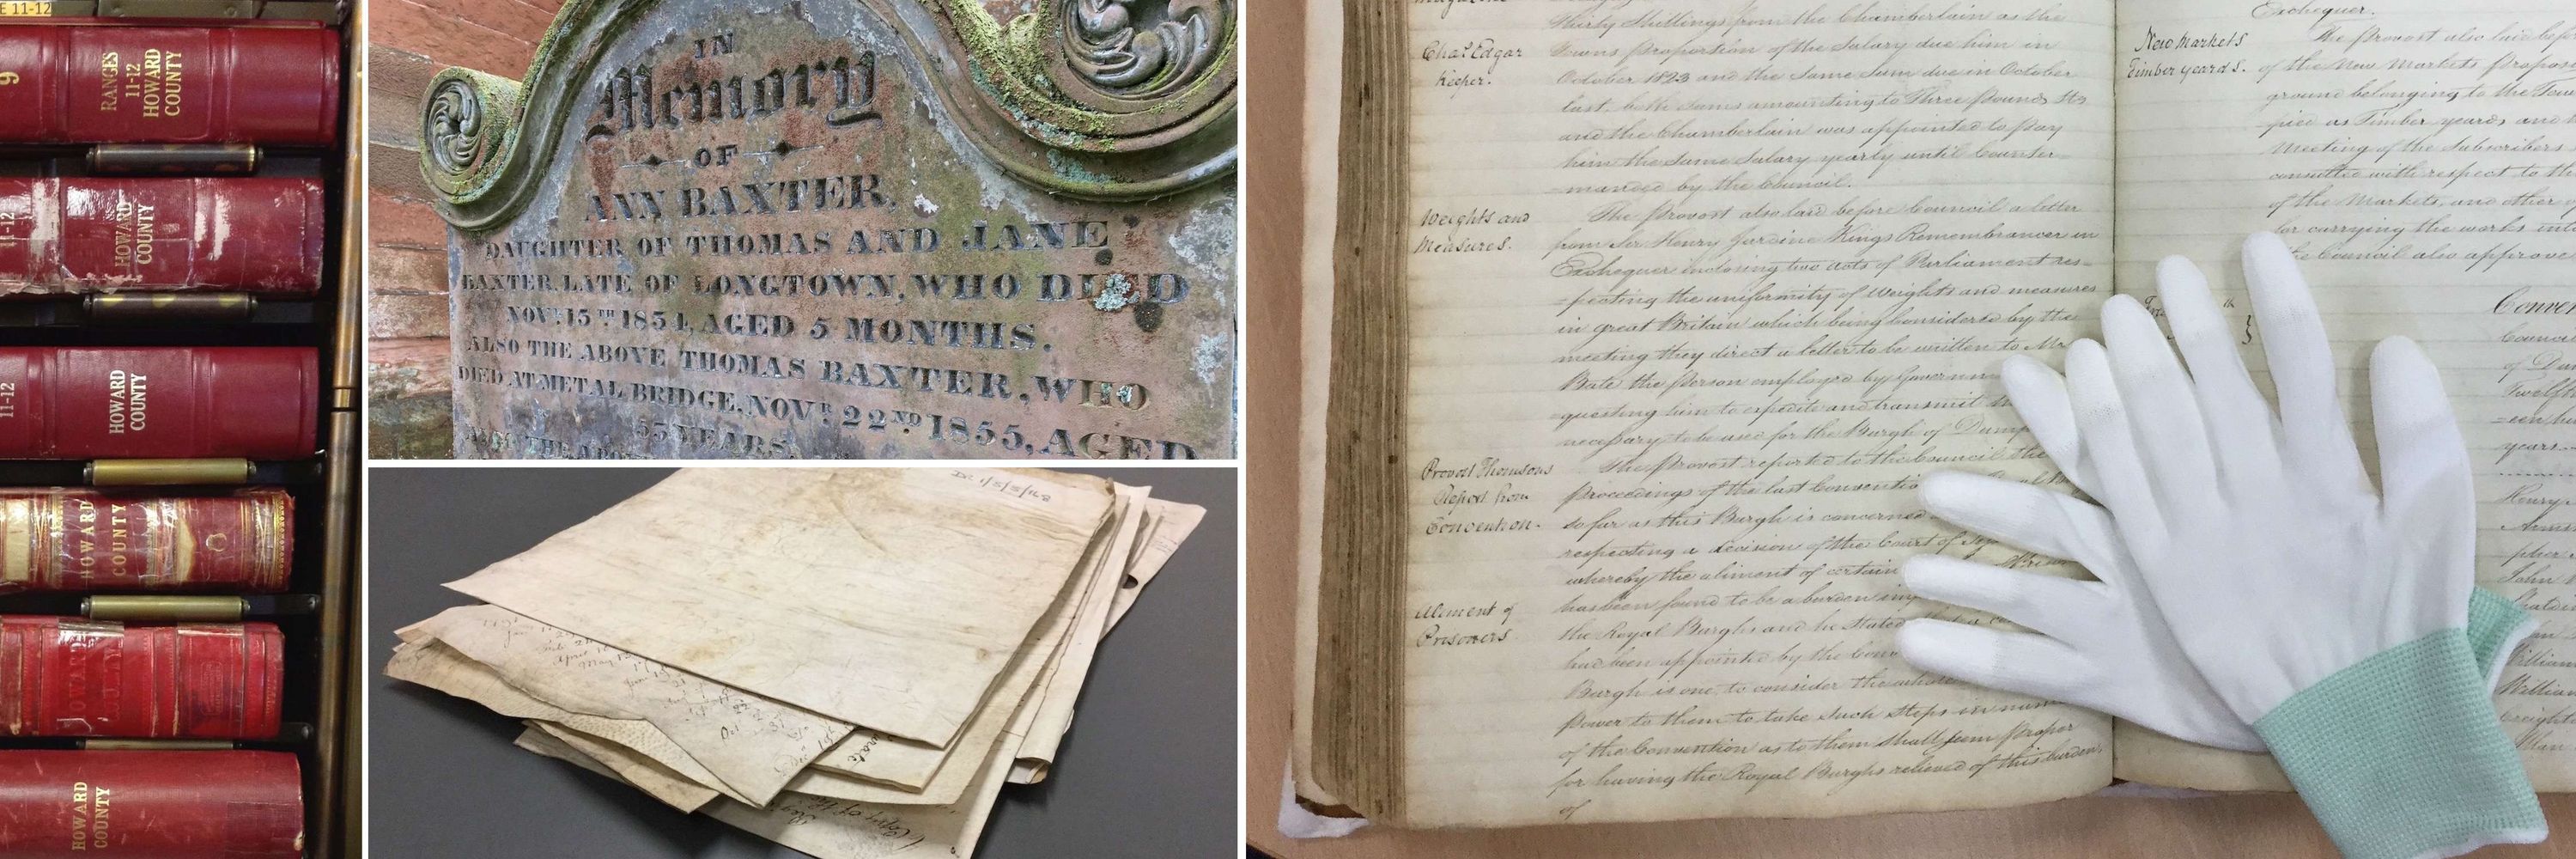 E 11-12
9
RANGES
11-12
HOWARD
COUNTY
11-12
HOWARD
COUNTY
11-12
HOWARD
COUNTY
HOWARD
COUNTY
HOWARD
COUNTY
HOWARD
COUNTY
IN
Memory
OF
ANN BAXTER,
DAUGHTER OF THOMAS AND JANE
BAXTER, LATE OF LONGTOWN, WHO DIED
NOVR 15TH 1854, AGED 5 MONTHS.
ALSO THE ABOVE THOMAS BAXTER, WHO
DIED AT METAL BRIDGE, NOVR 22ND 1855, AGED
55 YEARS.
Copy of the
Chas Edgar
keeper.
Thirty Shillings from the Chamberlain as the
Towns proportion of the Salary due him in
October 1823 and the same sum due in October
last, both sums amounting to Three pounds Stg
and the Chamberlain was appointed to pay
him the same Salary yearly until Counter-
=manded by the Council.
Weights and
Measures.
The Provost also laid before Council a letter
from Sir Henry Jardine Kings Remembrancer in
Exchequer inclosing two acts of Parliament res-
=pecting the uniformity of Weights and measures
in great Britain which being Considered by the
meeting they direct a letter to be written to Mr
Bate the person employed by Governm
=questing him to expedite and transmit
necessary to be used for the Burgh of Dumf
Provost Thomsons
Report from
Convention.
The Provost reported to the Council the
proceedings of the last Convention
so far as this Burgh is concerned
respecting a decision of the Court of
whereby the aliment of certain
has been found to be a burden
Aliment of
Prisoners
the Royal Burghs and he Stated
had been appointed by the Conv
Burgh is one, to consider the whole
power to them to take such Steps in name
of the Convention as to them shall seem proper
for having the Royal Burghs relieved of this burden
of
Exchequer.
New Markets
Timber yards.
The Provost also laid befo
of the New Markets propos
ground belonging to the Tow
piece as Timber yards, and
Meeting of the Subscribers
consulted with respect to th
of the Markets, and other
for carrying the works into
the Council also approve
Conven
Council
of Dum
Twelfth
years
Henry
John
William
William